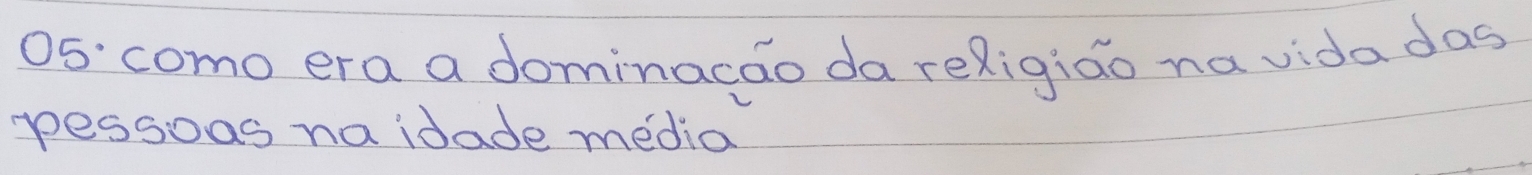 05. como era a dominação da religião na vida das
pessoas na idade média